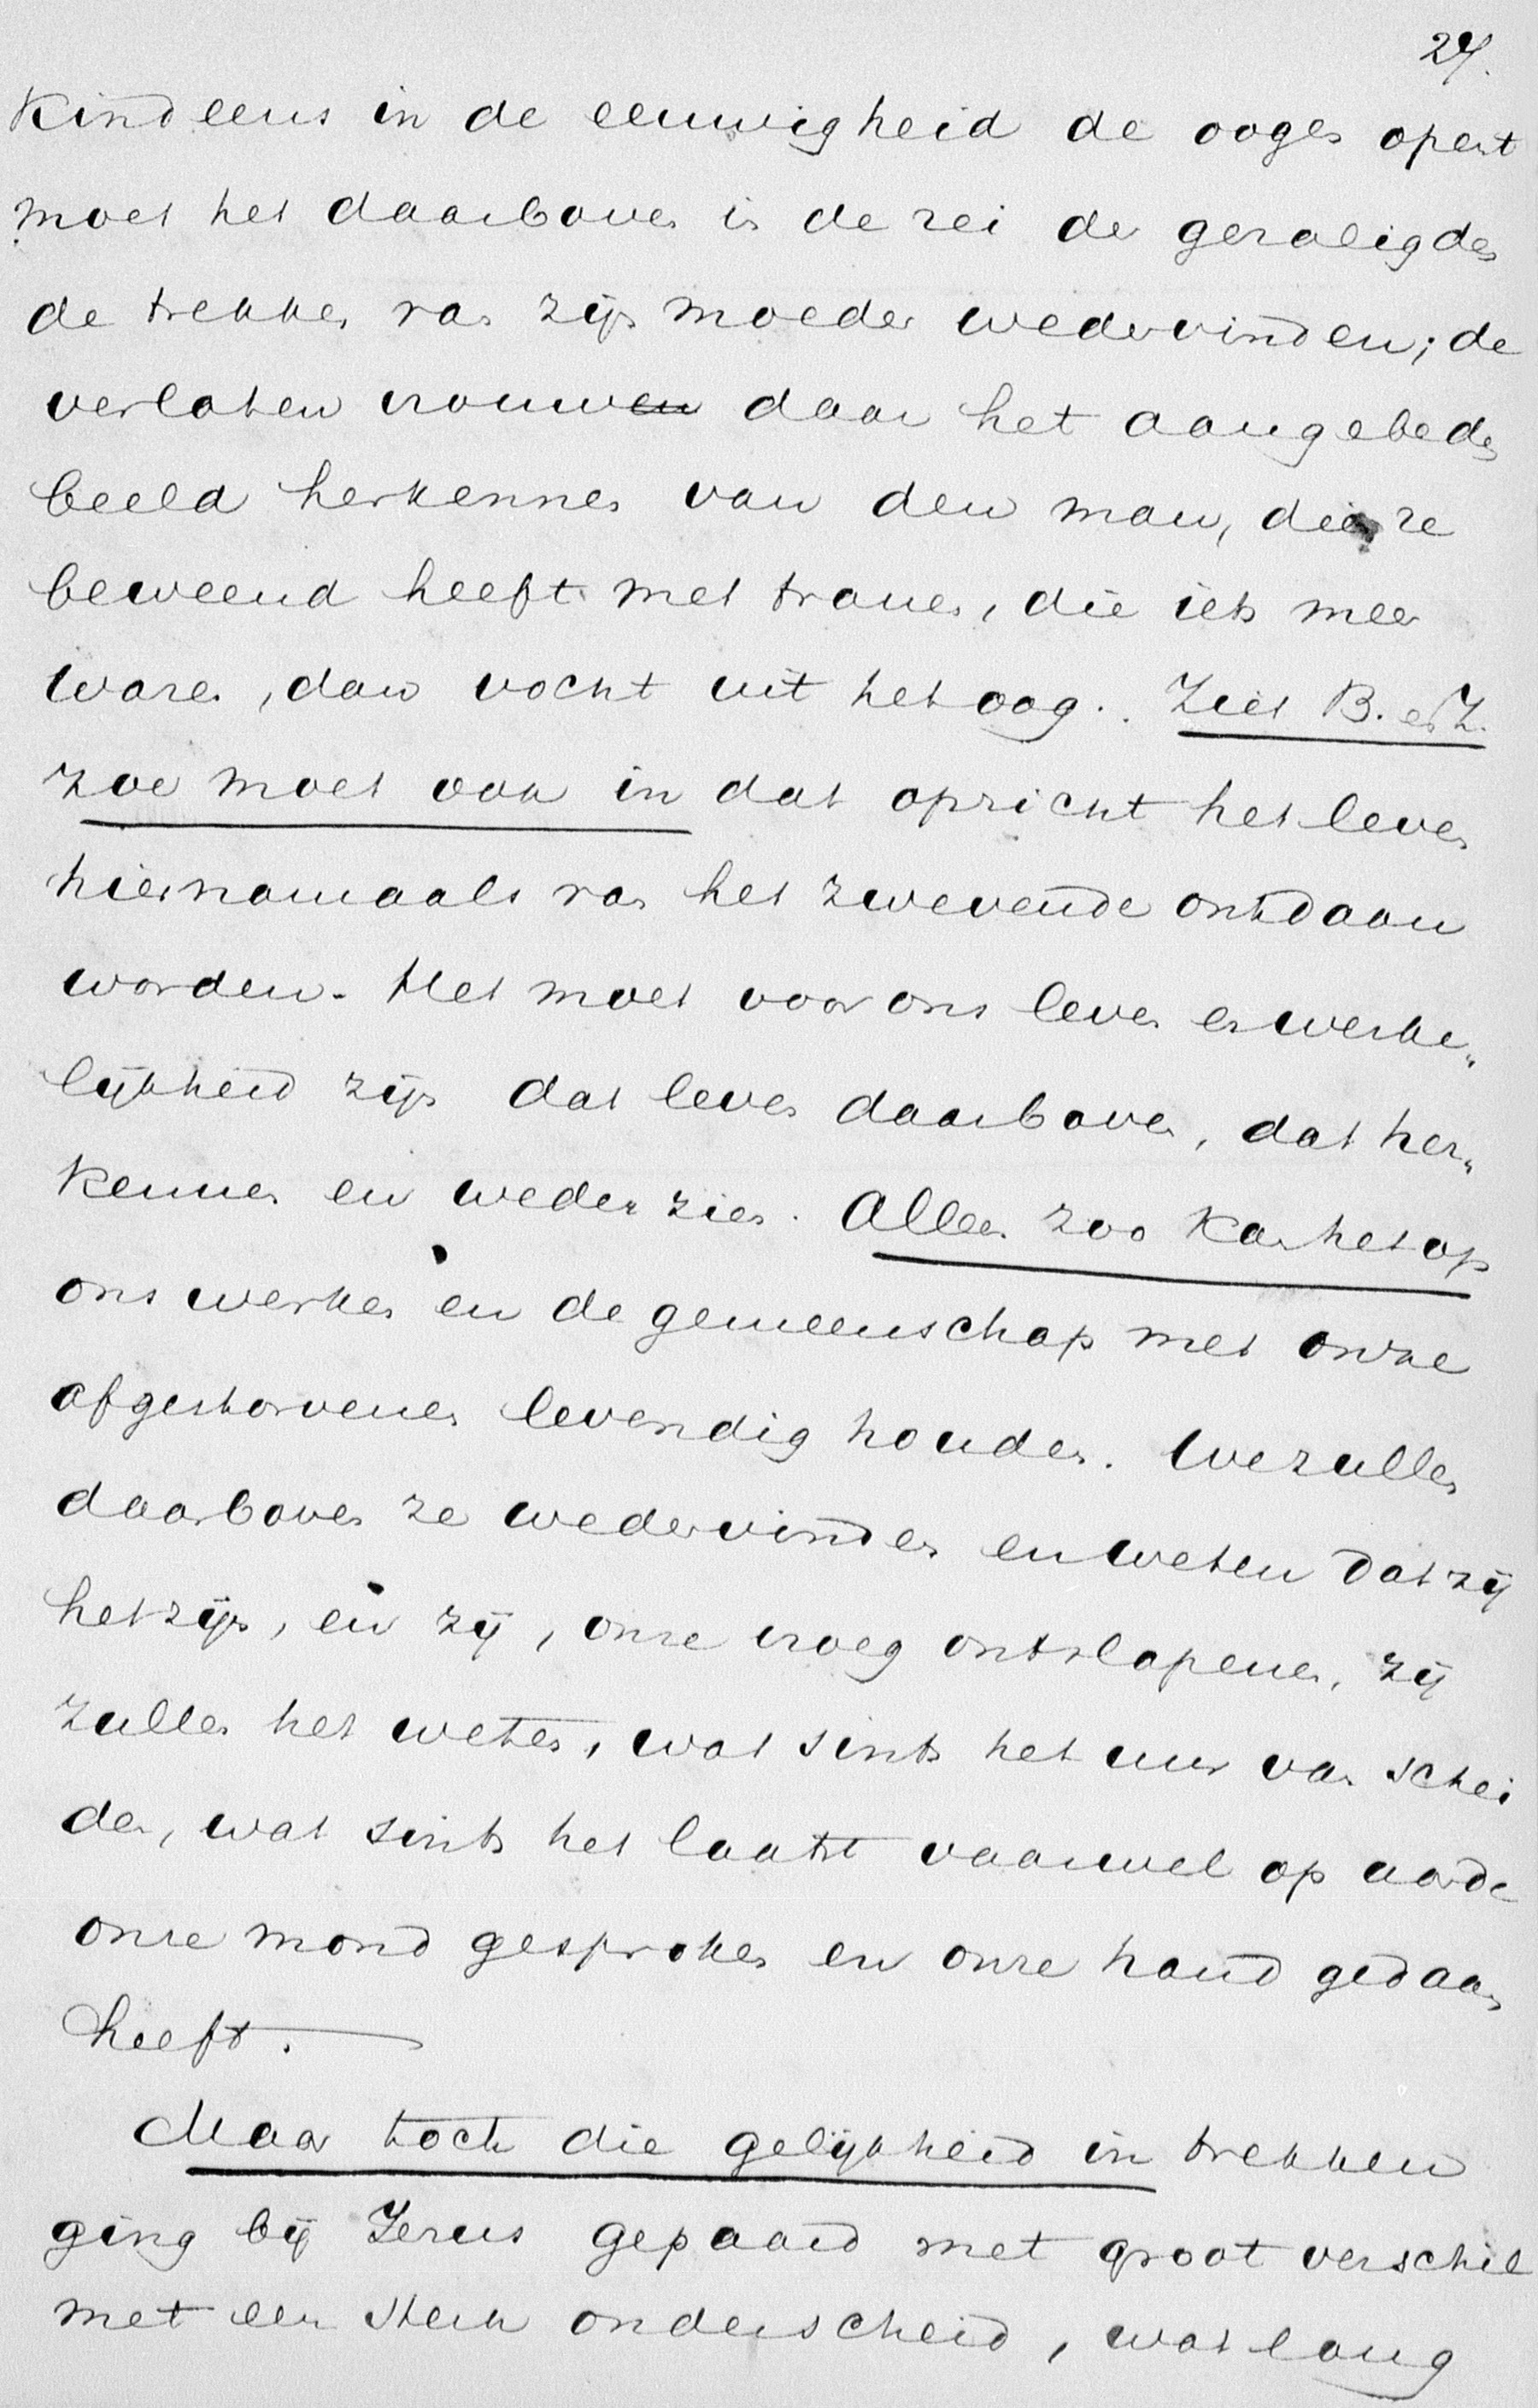 27.
Kind eens in de eeuwigheid de oogen opent
moet het daarboven in de rei der gezaligden
de trekken van zijn moeder wedervinden; de
verlaten vrouwen daar het aangebeden
beeld herkennen van den man, dien ze
beweend heeft met tranen, die iets meer
waren, dan vocht uit het oog. Ziet B. en Z.
zoo moet ook in dat opzicht het leven
hiernamaals van het zwevende ontdaan
worden. Het moet voor ons leven en werke„
lijkheid zijn dat leven daarboven, dat her„
kennen en weder zien. Alleen zoo kan het op
ons werken en de gemeenschap met onze
afgestorvenen levendig houden. We zullen
daarboven ze wedervinden en weten dat zij
het zijn, en zij, onze vroeg ontslapenen, zij
zullen het weten, wat sints het uur van schei
den, wat sints het laatst vaarwel op aarde
onze mond gesproken en onze hand gedaan
heeft.
Maar toch die gelijkheid in trekken
ging bij Jezus gepaard met groot verschil
met een sterk onderscheid, wat lang